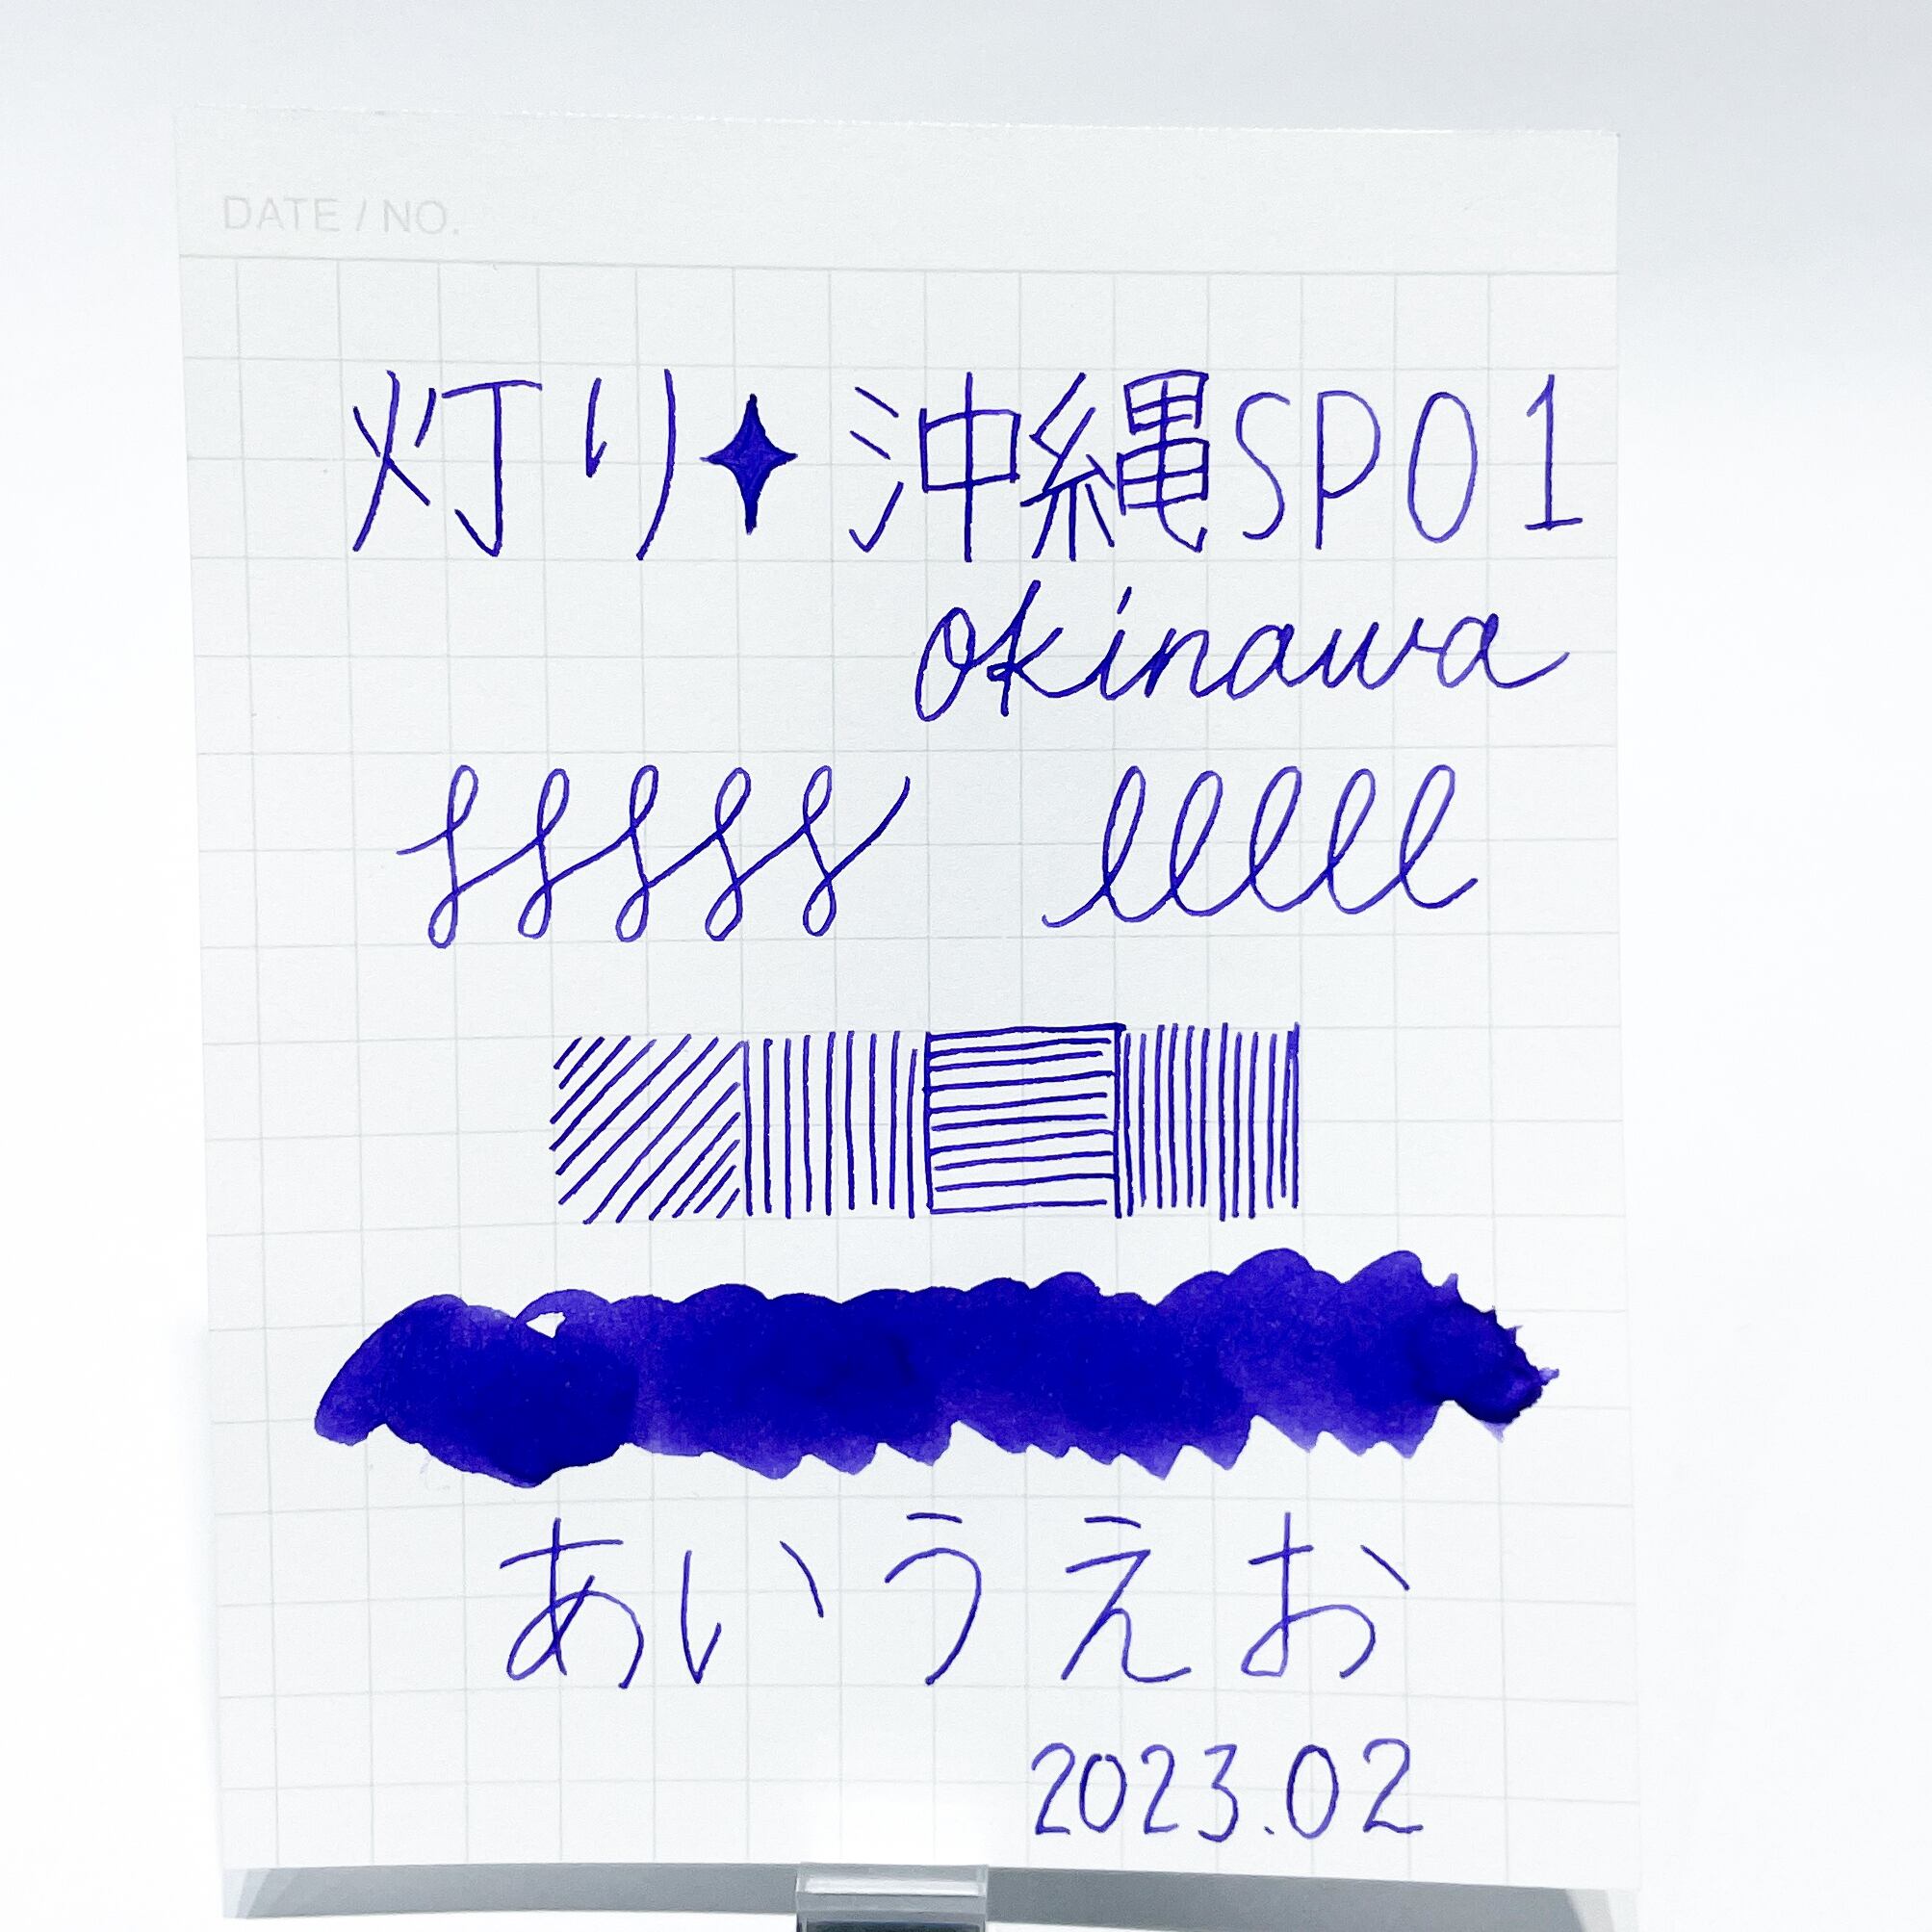 DATE / NO.
灯り✦沖縄SP01
okinawa
lllll
あいうえお
2023.02